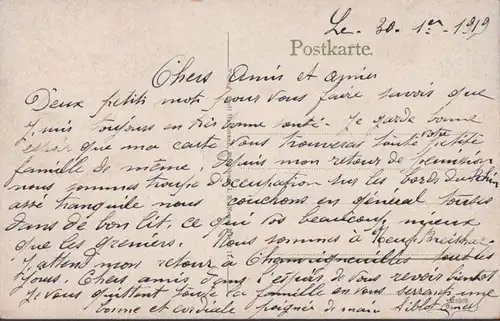 Le 30 1er 1919
Postkarte.
Chers Amis et amies
Deux petits mot pour vous faire savoir que
je suis toujours en très bonne santé. Je garde bonne
espoir que ma carte vous trouveras toute votre petite
famille de même. Depuis mon retour de
nous sommes troupe d'occupation sur les bords du Rhin
assé tranquile nous couchons en général toutes
dans de bon lit, ce qui vos beaucoup mieux
que les greniers. Nous sommes à Neuf Breisach
J'attend mon retour à tout les
jours. Chers amis dans l'espoir de vous revoir bientot
Je vous quittent toute la famille en vous serrant une
bonne et cordiale poignée de main